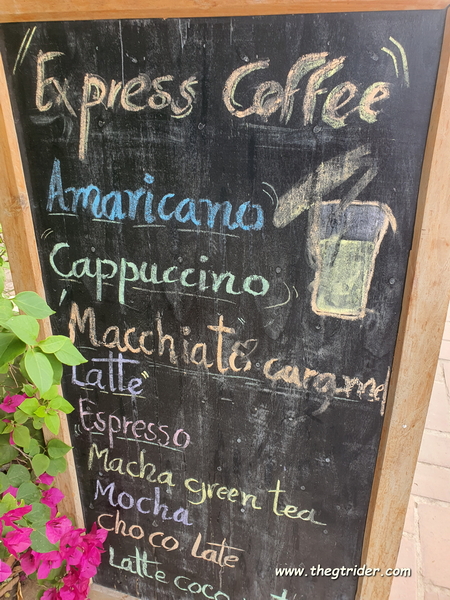 Express Coffee
Amaricano
Cappuccino
Macchiato caramel
Latte
Espresso
Macha green tea
Mocha
choco Late
Latte coco
www.thegtrider.com